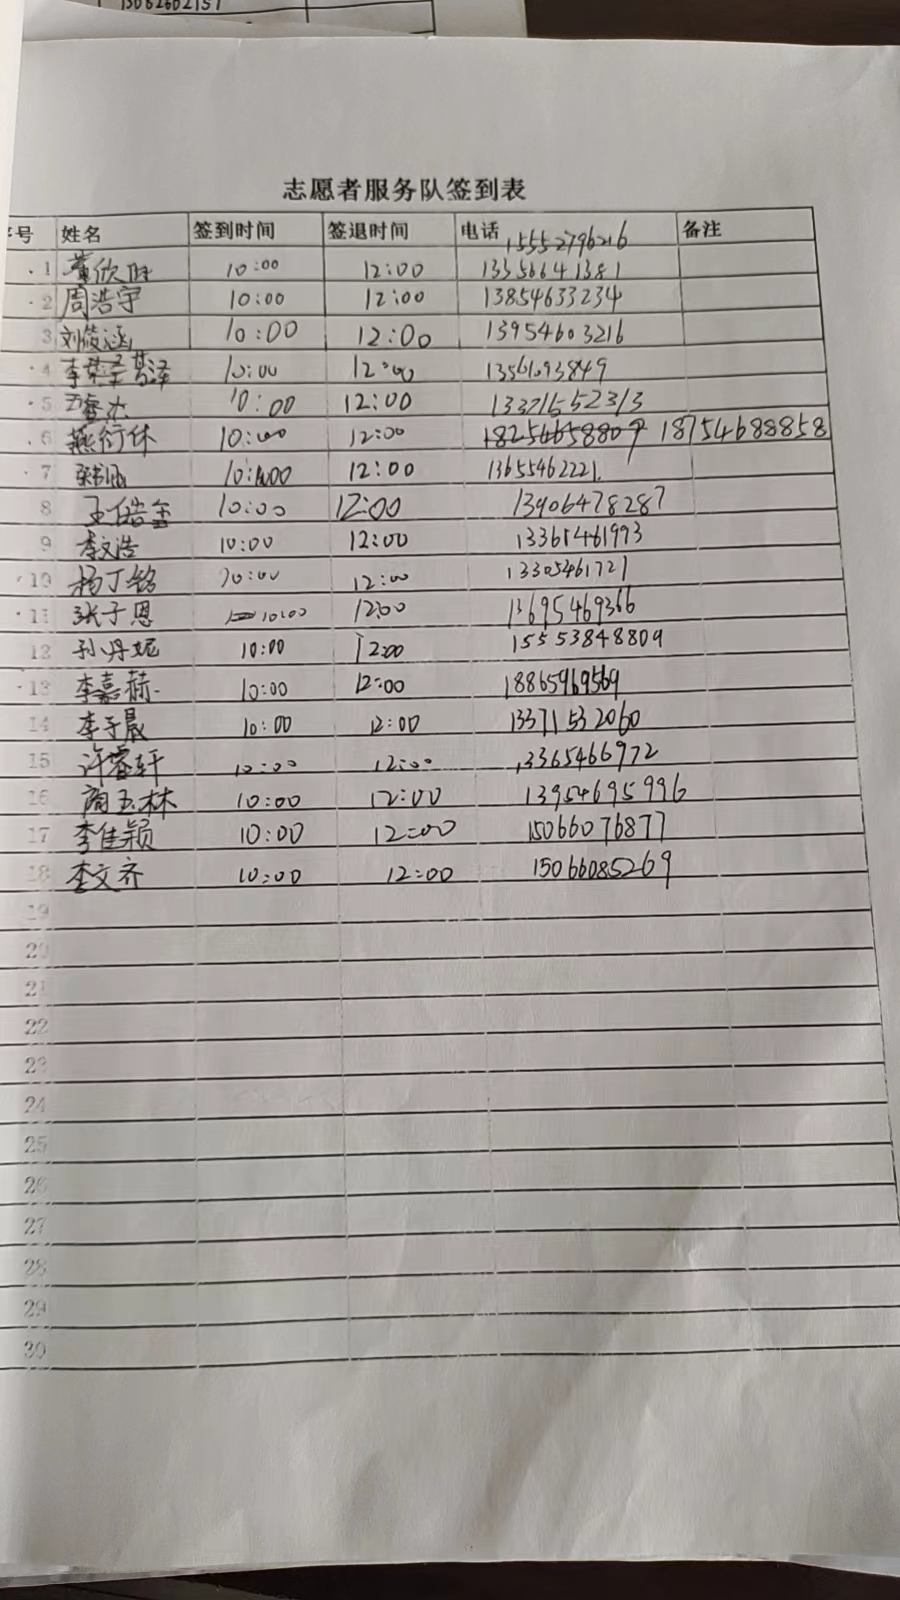 志愿者服务队签到表
序号 姓名 签到时间 签退时间 电话 15552796216 备注
1 10:00 12:00 13356641381
2 周浩宇 10:00 12:00 13854633234
3 刘筱涵 10:00 12:00 13954603216
4 10:00 12:00 13561093849
5 10:00 12:00 13371552313
6 燕衍休 10:00 12:00 18254658809 18754688858
7 10:00 12:00 13655462221
8 王皓 10:00 12:00 13906478287
9 李文浩 10:00 12:00 13365461993
10 杨丁铭 10:00 12:00 13305461721
11 张子恩 10:00 12:00 13695469366
12 孙丹妮 10:00 12:00 15553848809
13 李嘉赫 10:00 12:00 18865969569
14 李子晟 10:00 12:00 13371532060
15 许睿轩 10:00 12:00 13365466972
16 商玉林 10:00 12:00 13954695996
17 李佳颖 10:00 12:00 15066076877
18 李文齐 10:00 12:00 15066085269
19
20
21
22
23
24
25
26
27
28
29
30